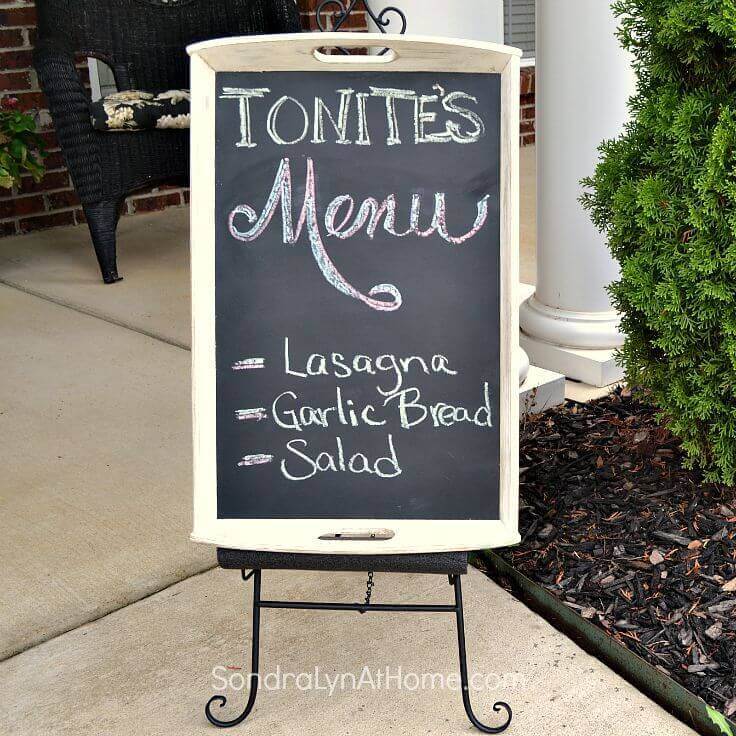 TONITE'S
Menu
- Lasagna
- Garlic Bread
- Salad
SondraLynAtHome.com